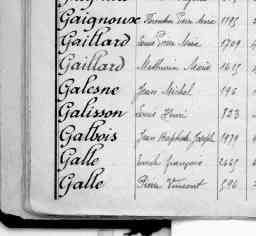 Gaignoux Pierre Marie 1185
Gaillard Louis Pierre Marie 1709
Gaillard Mathurin Marie
Galesne Jean Michel 196
Galisson Louis Henri 823
Galbois Jean Baptiste Joseph 1979
Galle françois
Galle Pierre Vincent 596